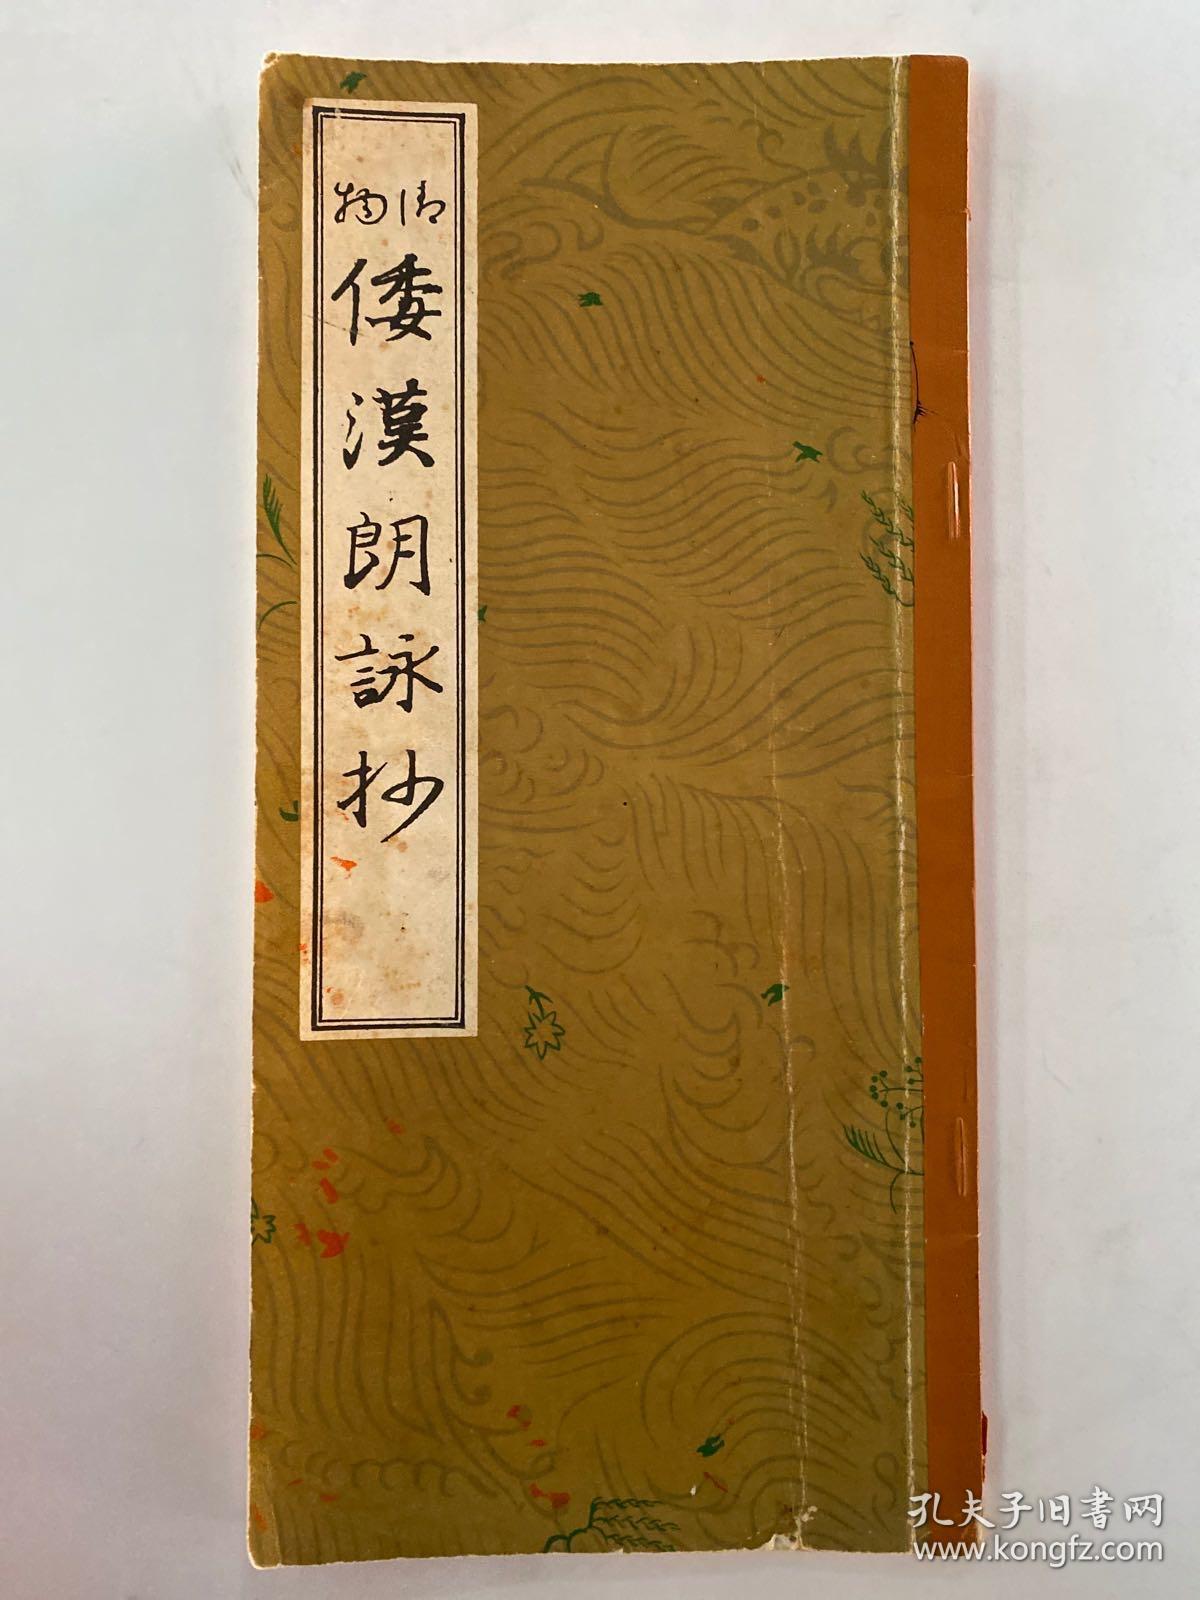 御物
倭漢朗詠抄
孔夫子旧書网
www.kongfz.com